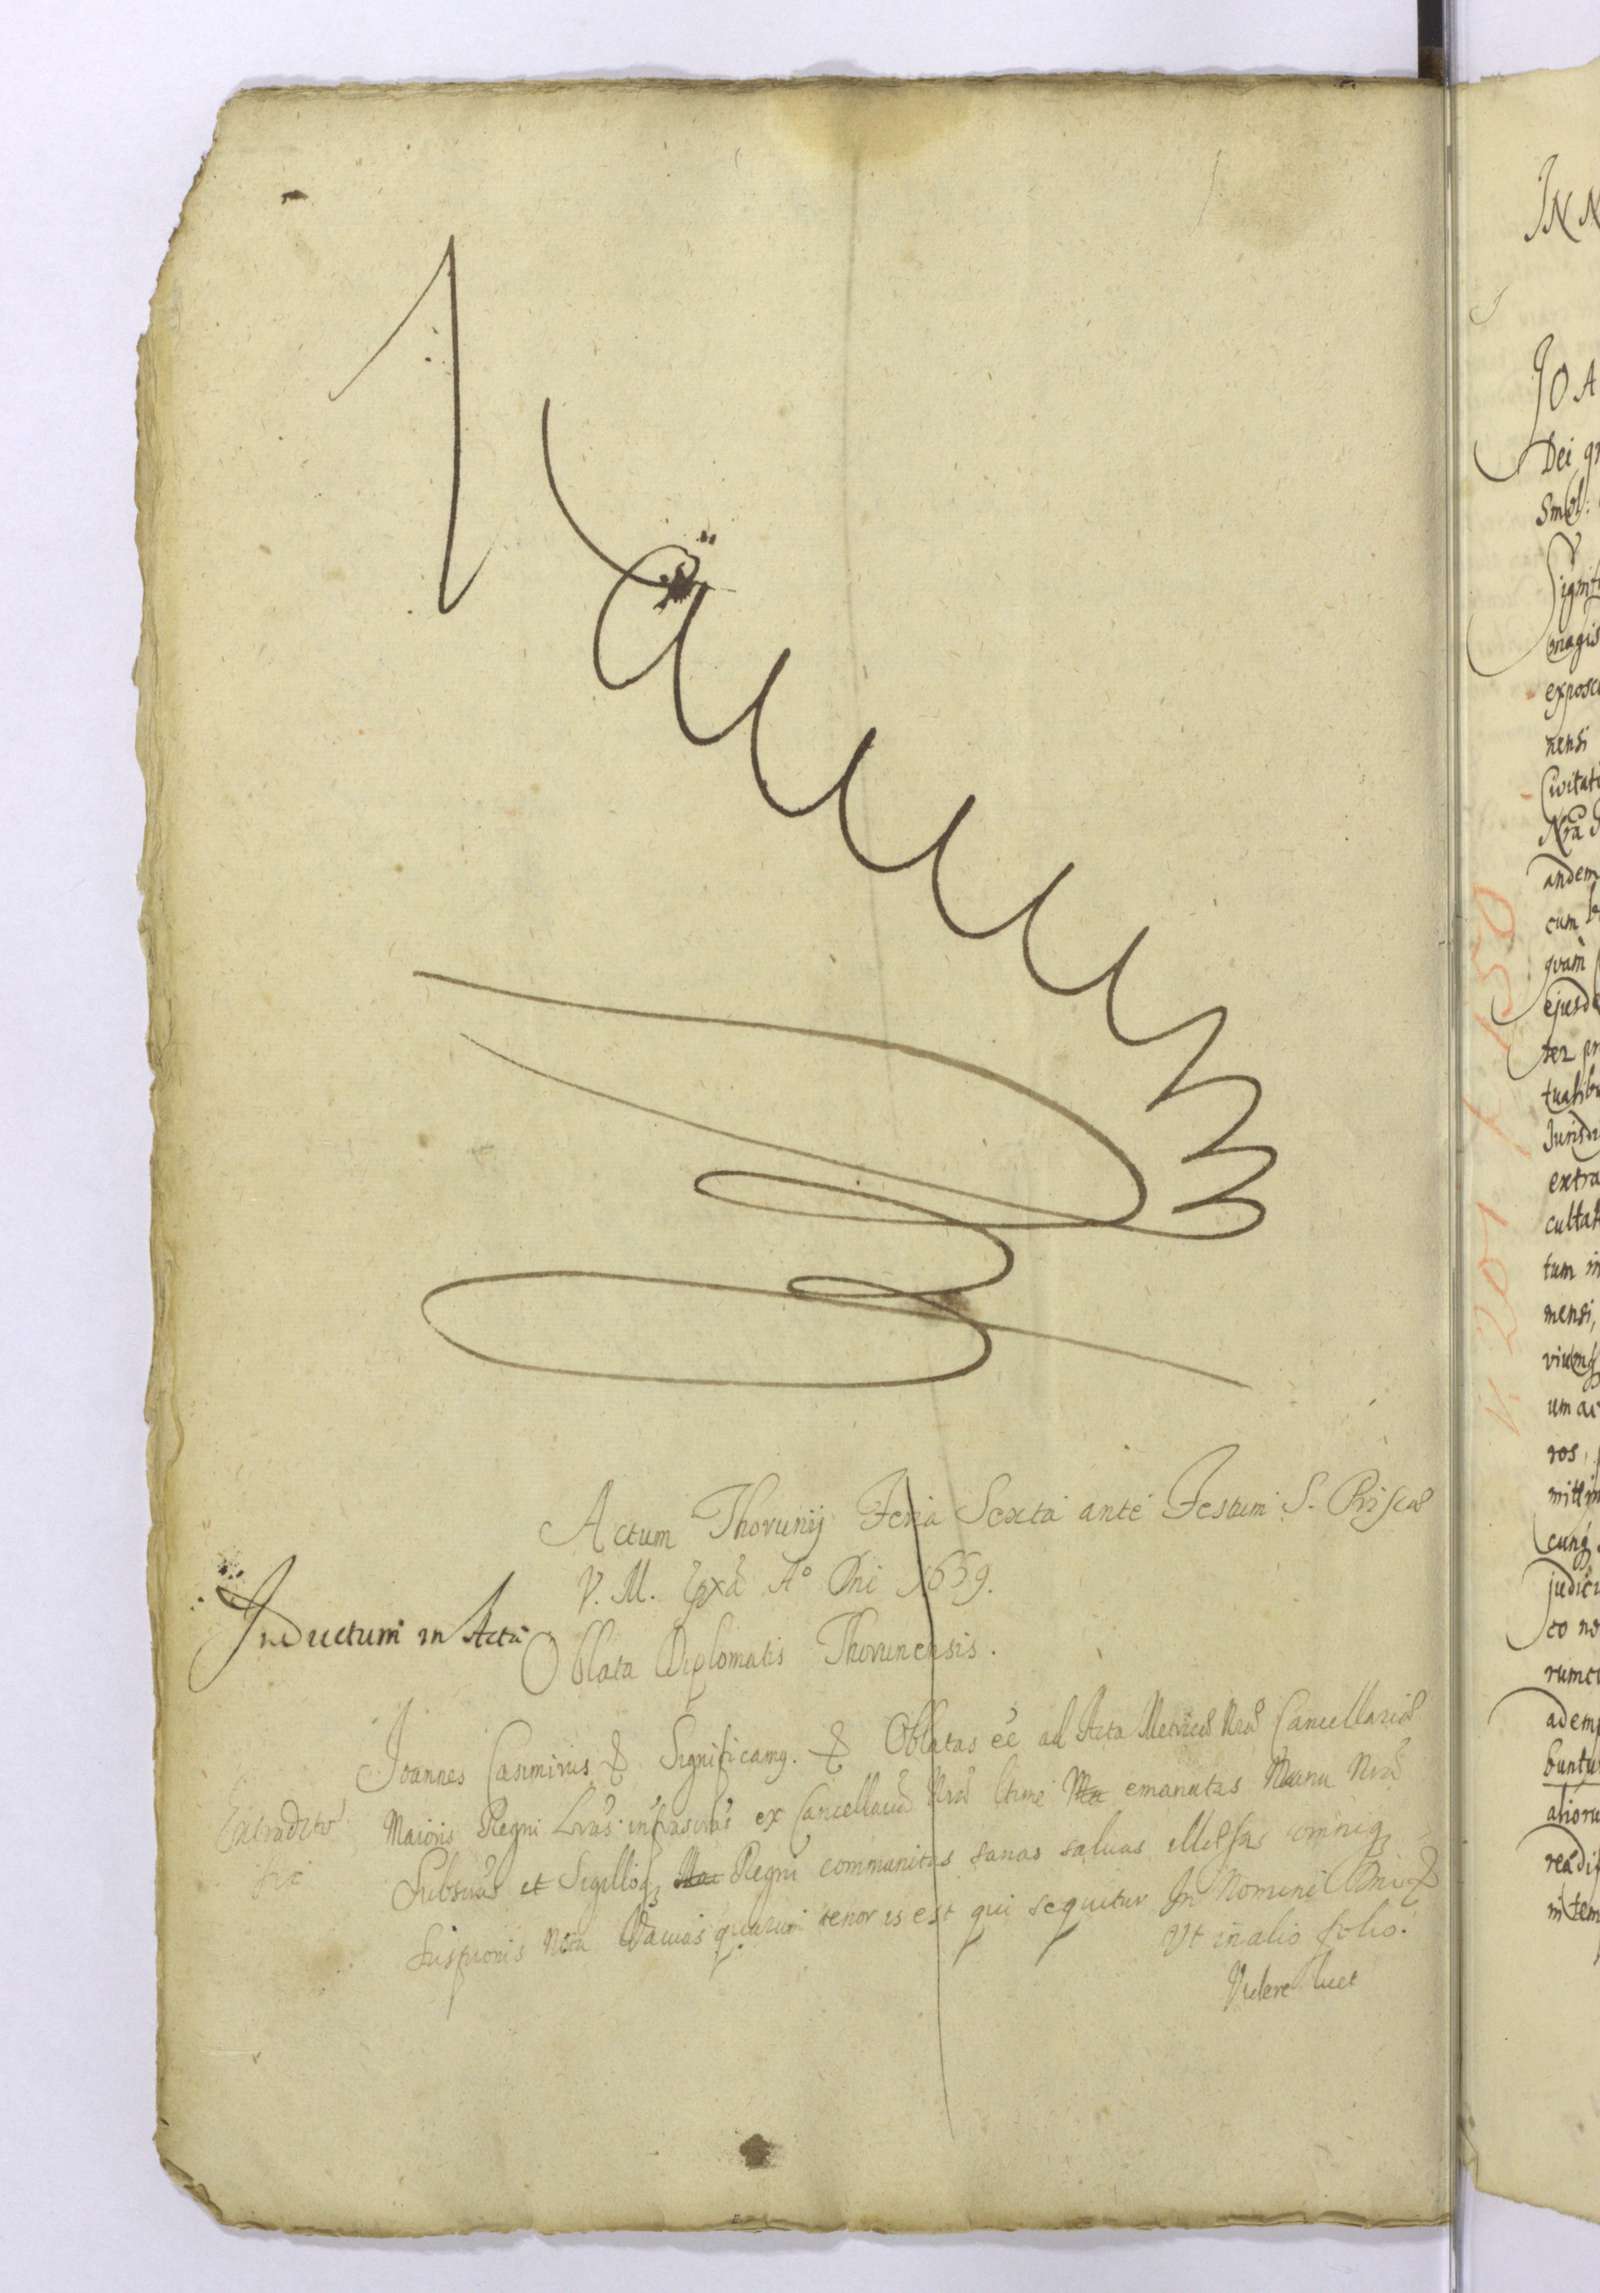 Actum Thorunij Feria Sexta ante Festum S. Priscae
V. M. Ao Dni 1659.
Inductum in Acta
Oblata Diplomatis Thorunensis.
Joannes Casimirus & Significamq. & Oblatas eē ad Acta Metricae Nrae Cancellariae
Maioris Regni Lrās infrascrās ex Cancellaria Nrā emanatas Manu Nrā
Subscrās et Sigilloq Regni communitas sanas saluas illaesas omniq
Suspicionis nota quarum tenor is est qui sequitur In Nomine Dni &
Ut in alio folio.
Videre licet
Extraditū
IN N
JOA
Dei gr
Smol:
Signifi
magis
exposc
nensi
Civitati
Nrā
andem
cum
quàm
ejusd
ter pr
tualib
Jurisdi
extra
cultat
tum in
mensi,
um ac
ros,
mittim
cunq
judici
co no
rumcu
ademp
buntur
alioru
in tem